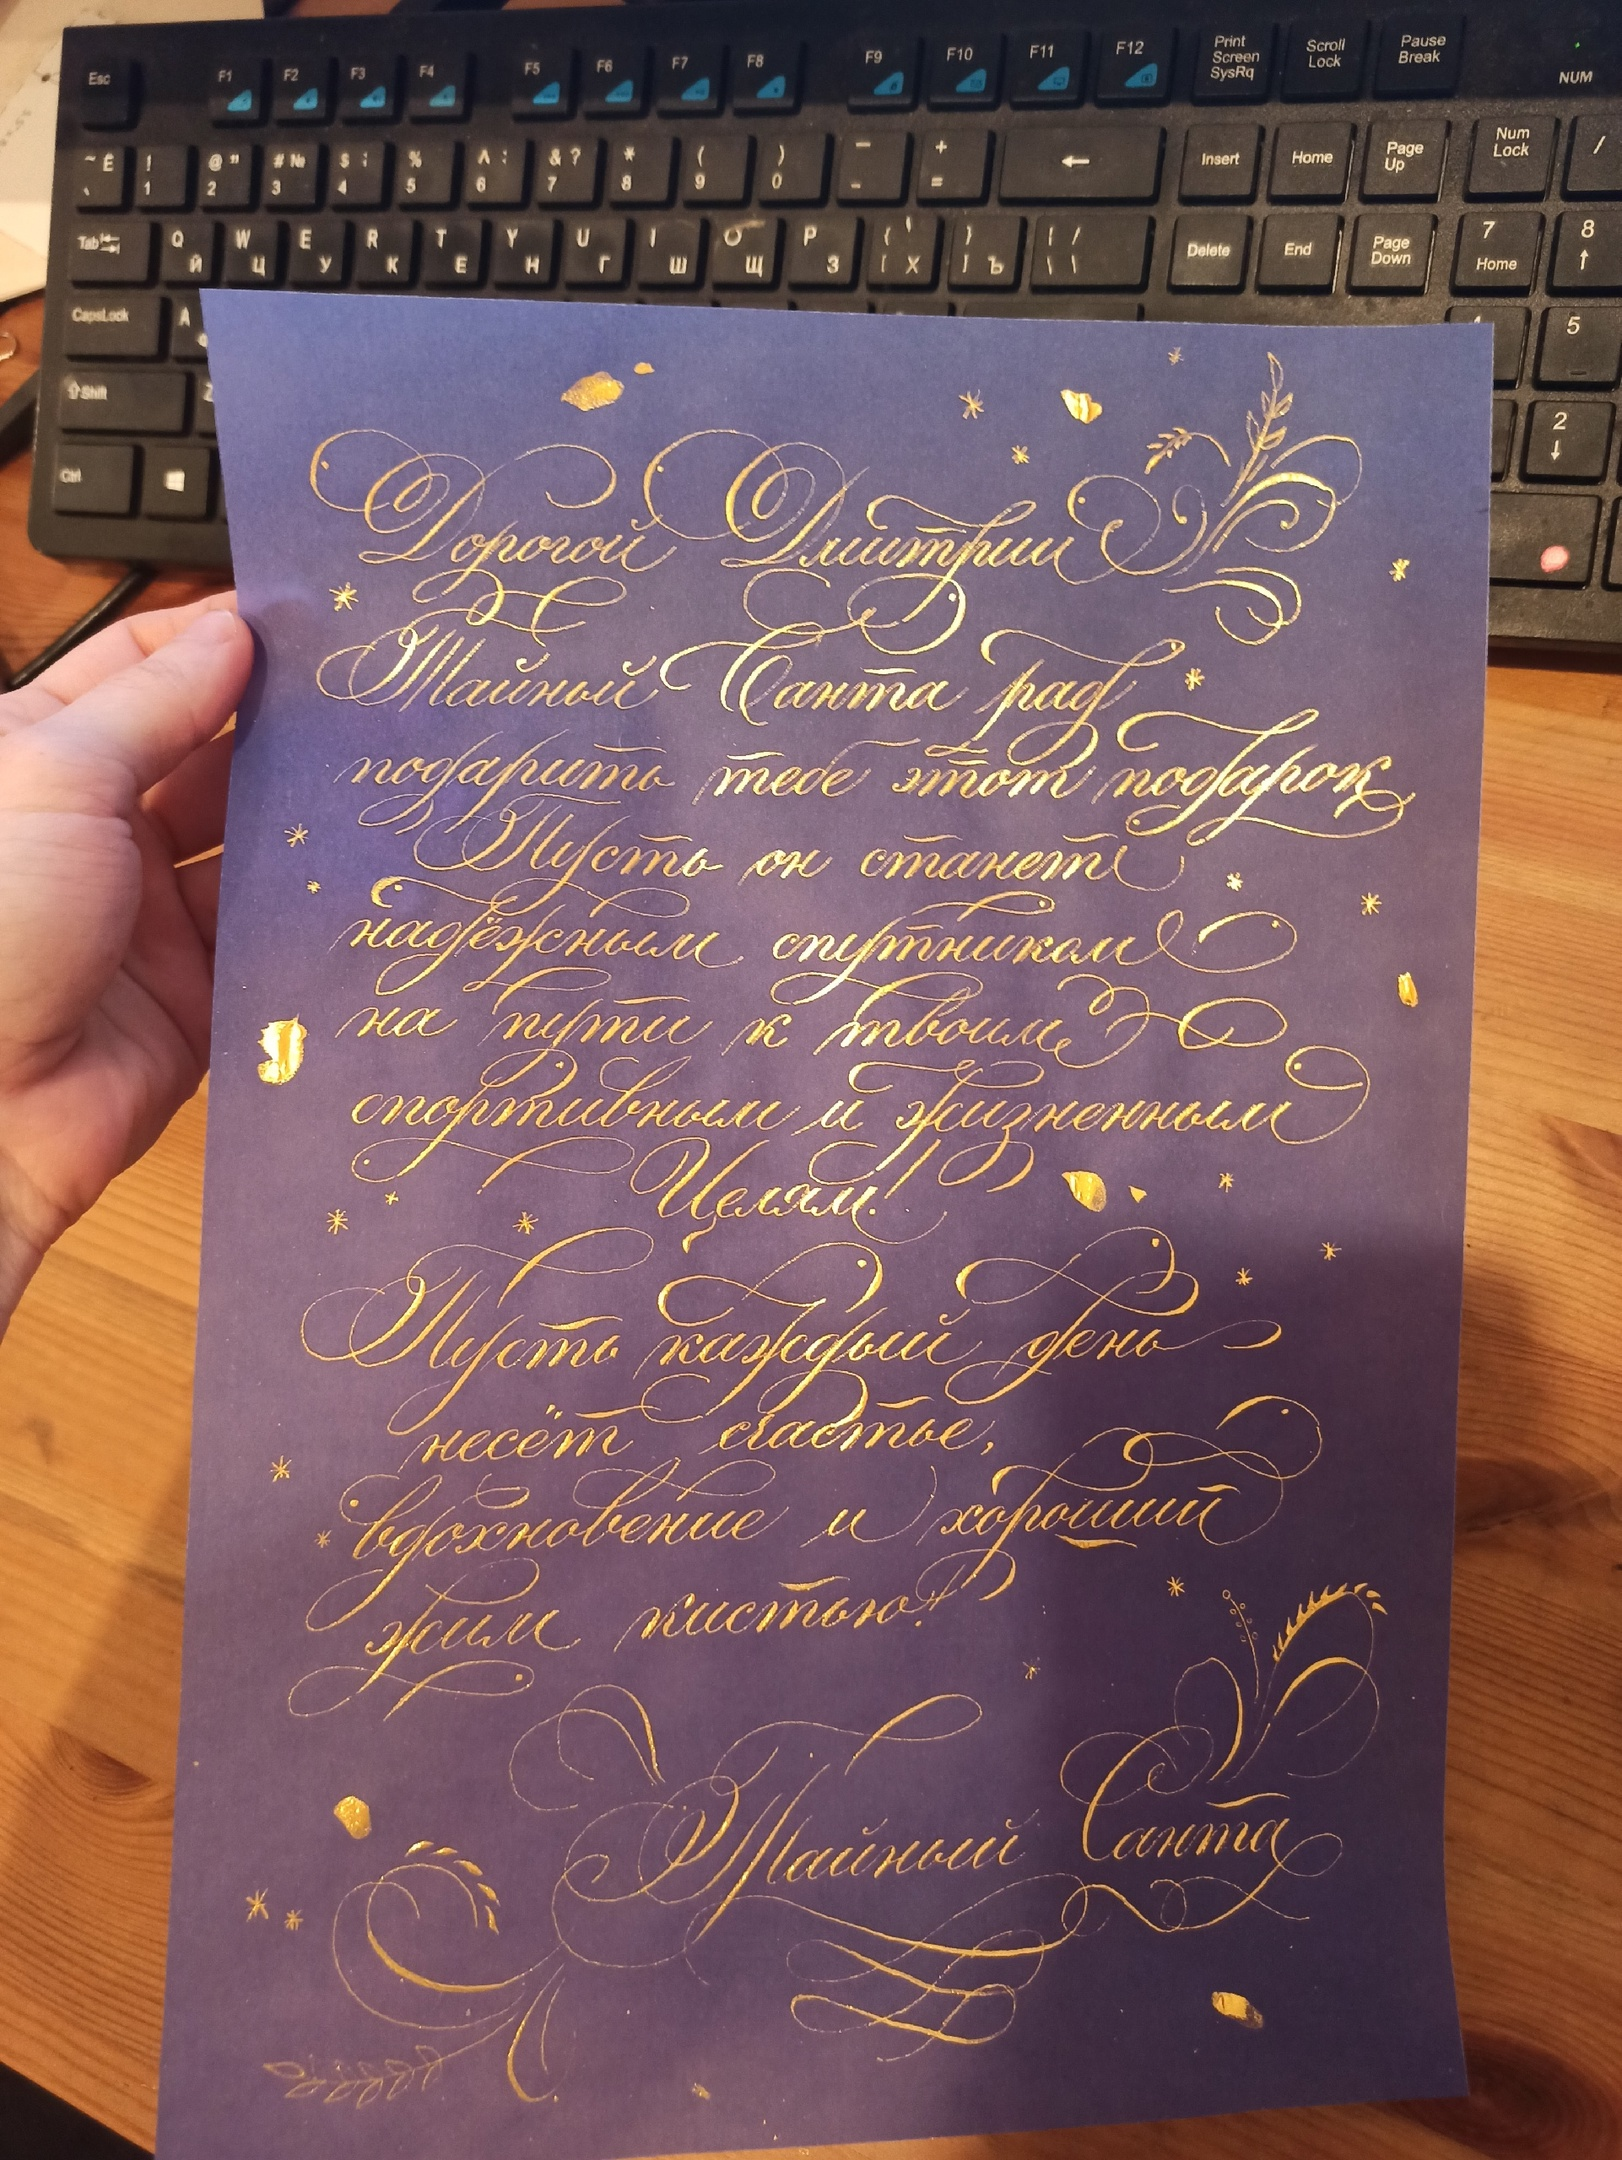 Esc F1 F2 F3 F4 F5 F6 F7 F8 F9 F10 F11 F12 Print Screen SysRq Scroll Lock Pause Break NUM
~ Ё ! 1 @ " 2 # № 3 $ ; 4 % 5 ^ : 6 & ? 7 * 8 ( 9 ) 0 _ - + = ← Insert Home Page Up Num Lock /
Tab Q Й W Ц E У R К T Е Y Н U Г I Ш O Щ P З { [ Х } ] Ъ | / \ \ Delete End Page Down 7 Home 8 ↑
CapsLock A 5
Shift Z 2 ↓
Ctrl
Дорогой Дмитрий
Тайный Санта рад
подарить тебе этот подарок
Пусть он станет
надёжным спутником
на пути к твоим
спортивным и жизненным
Целям!
Пусть каждый день
несёт счастье,
вдохновение и хороший
жим кистью!
Тайный Санта